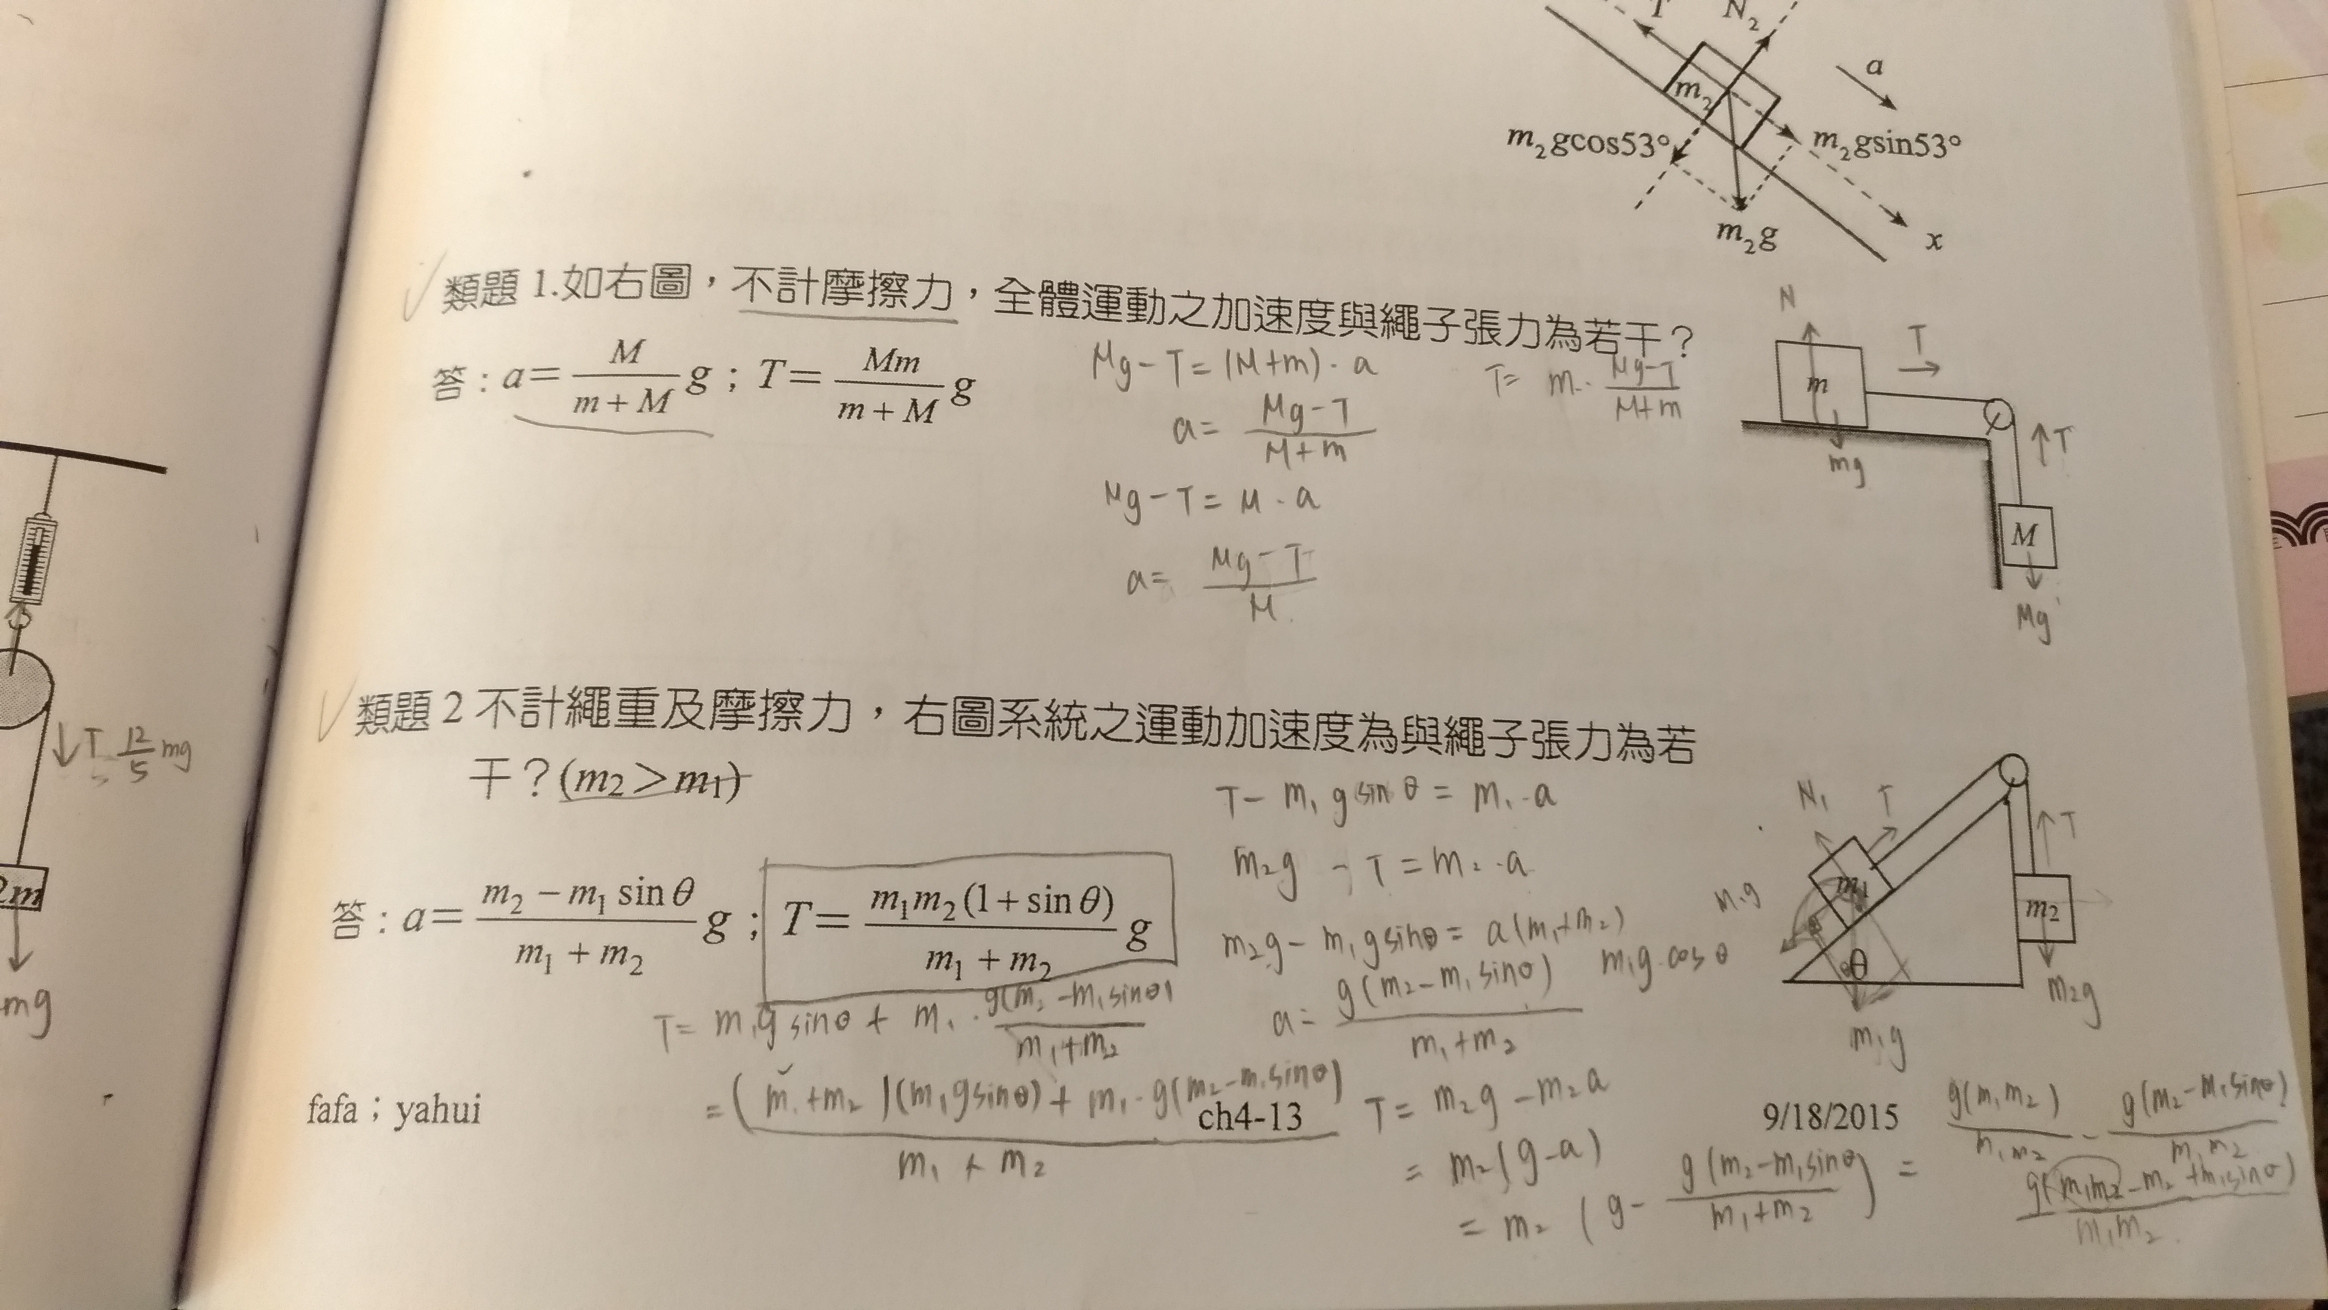 T N₂
a
m₂
m₂gcos53° m₂gsin53°
m₂g
x
類題 1.如右圖，不計摩擦力，全體運動之加速度與繩子張力為若干？
答：a＝\frac{M}{m + M} g；T＝\frac{Mm}{m + M} g
Mg - T = (M+m)·a
a = \frac{Mg - T}{M+m}
Mg - T = M·a
a = \frac{Mg - T}{M}
T = m·\frac{Mg-T}{M+m}
N
T
m
mg
T
M
Mg
T \frac{12}{5} mg
2m
mg
類題 2 不計繩重及摩擦力，右圖系統之運動加速度為與繩子張力為若
干？(m₂＞m₁)
答：a＝\frac{m₂ − m₁ sin θ}{m₁ + m₂} g；T＝\frac{m₁m₂ (1 + sin θ)}{m₁ + m₂} g
T - m₁ g sin θ = m₁·a
m₂g - T = m₂·a
m₂g - m₁g sinθ = a(m₁+m₂)
a = \frac{g(m₂ - m₁ sinθ)}{m₁+m₂}
N₁ T
m₁
T
m₂
m₂g
m₁g
m₁g cos θ
θ
m₁g
T = m₁g sinθ + m₁·\frac{g(m₂ - m₁sinθ)}{m₁+m₂}
= \frac{(m₁+m₂)(m₁gsinθ) + m₁·g(m₂-m₁sinθ)}{m₁ + m₂}
T = m₂g - m₂a
= m₂(g-a)
= m₂ (g - \frac{g(m₂-m₁sinθ)}{m₁+m₂}) = \frac{g(m₁m₂)}{m₁m₂} - \frac{g(m₂-m₁sinθ)}{m₁m₂}
\frac{g(m₁m₂-m₂+m₁sinθ)}{m₁m₂}
fafa；yahui ch4-13 9/18/2015